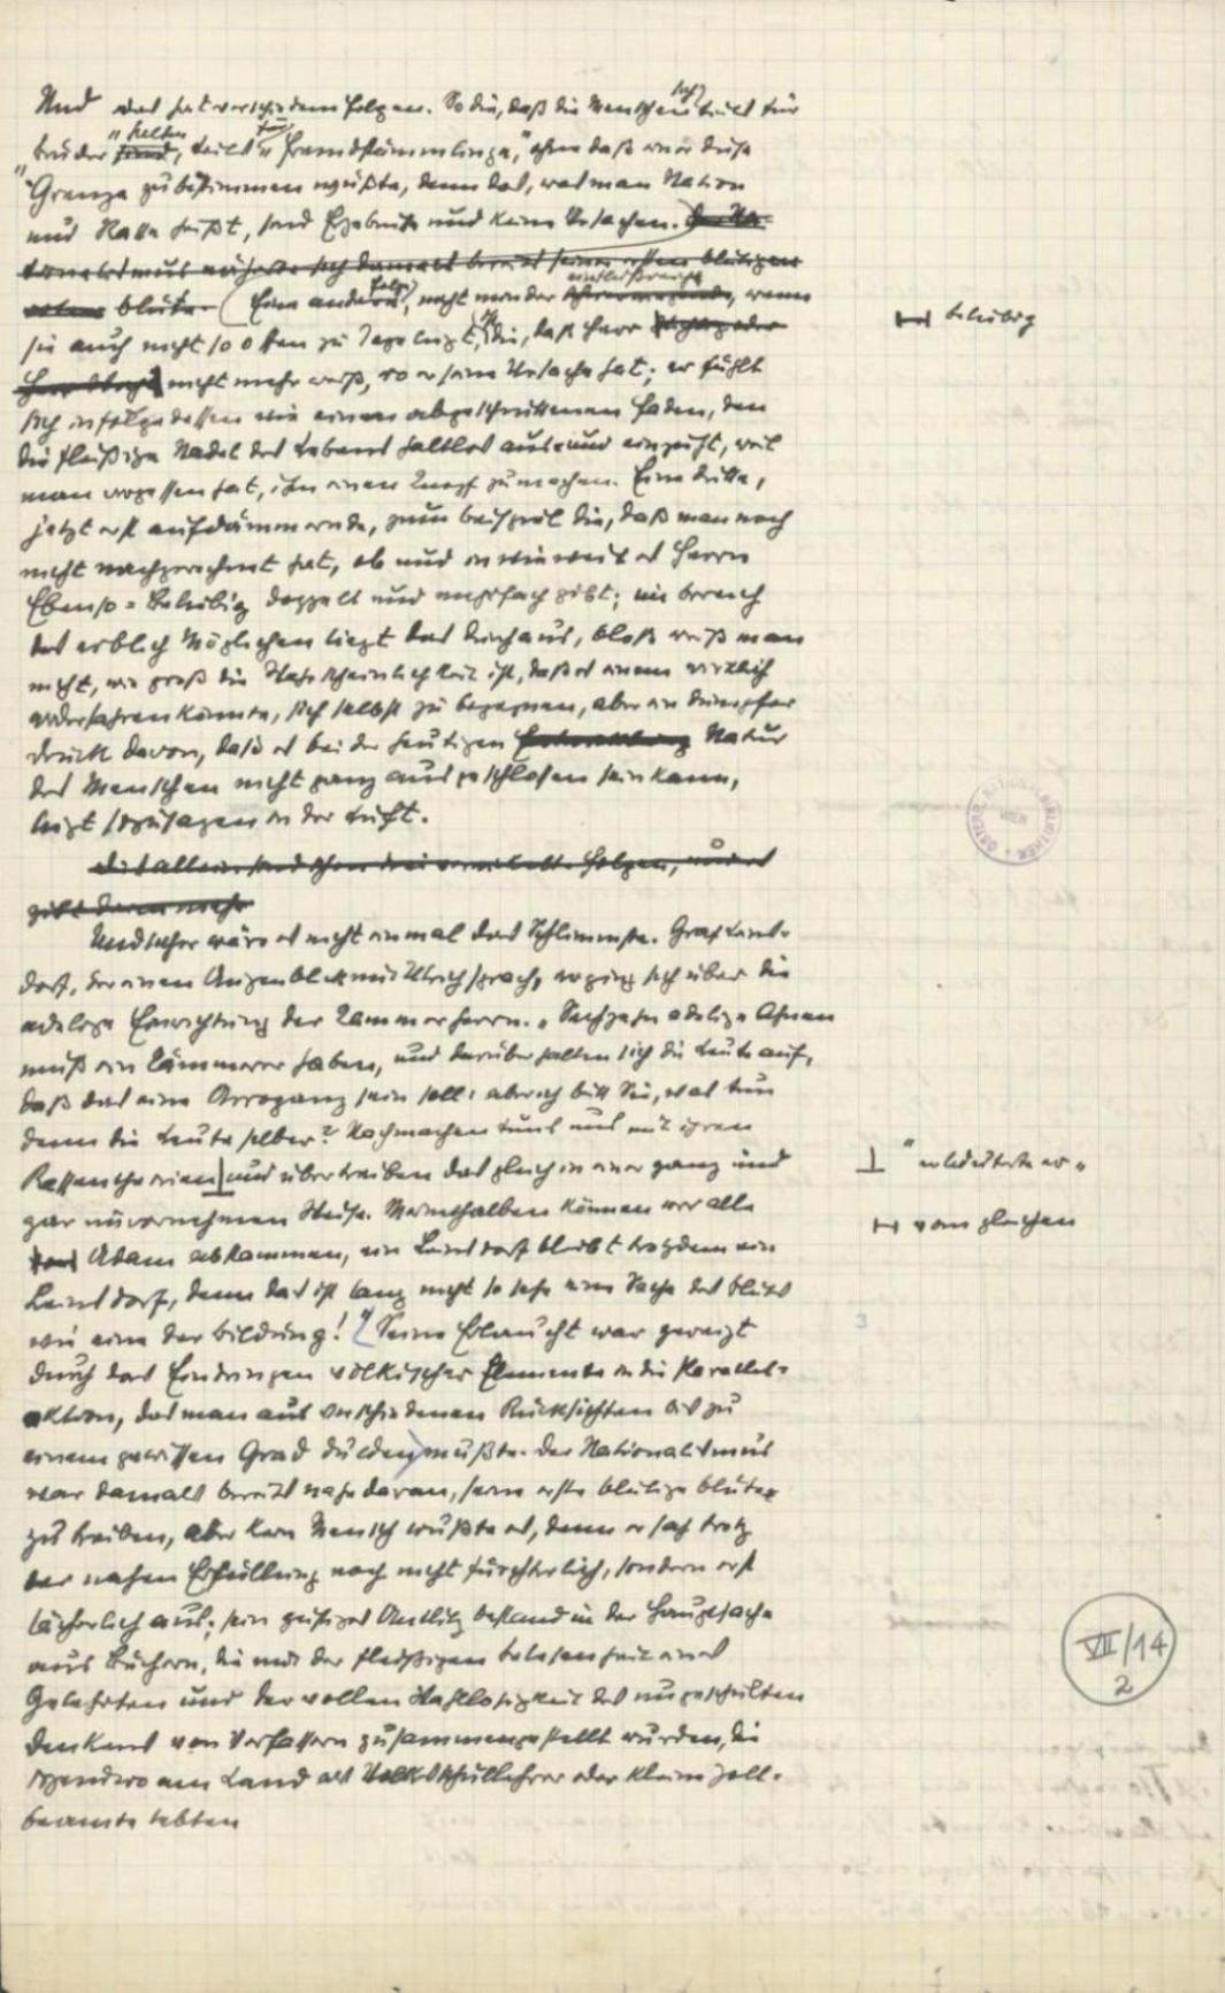 Und das hat verschiedene Folgen. So die, daß die Menschen sich teils für
"Brüder" halten, teils für "Fremdstämmlinge," ohne daß wer diese
Grenze zu bestimmen wüßte, denn das, was man Nation
und Rasse heißt, sind Ergebnisse und keine Ursachen. Der Na-
tionalismus näherte sich damals bereits seiner ersten blutigen
Blüte. (Eine andere Folge, nicht minder einflußreich, wenn
beliebig
sie auch nicht so offen zu Tage liegt, ist die, daß Herr
nicht mehr weiß, wo er seine Ursache hat; er fühlt
sich infolgedessen wie einen abgeschnittenen Faden, den
die fleißige Nadel des Lebens haltlos aus- und einzieht, weil
man vergessen hat, ihm einen Knopf zu machen. Eine dritte,
jetzt erst aufdämmernde, zum Beispiel die, daß man noch
nicht nachgerechnet hat, ob und inwieweit es Herrn
Ebenso-Beliebig doppelt und mehrfach gibt; im Bereich
des erblich Möglichen liegt das durchaus, bloß weiß man
nicht, wie groß die Wahrscheinlichkeit ist, daß es einem wirklich
widerfahren könnte, sich selbst zu begegnen, aber ein dumpfer
Druck davon, daß es bei der heutigen Natur
des Menschen nicht ganz ausgeschlossen sein kann,
liegt sozusagen in der Luft.
Das allein sind schon drei Folgen, und es
gibt deren mehr
Und sicher wäre es nicht einmal das Schlimmste. Graf Leins-
dorf, der einen Augenblick mit Ulrich sprach, erging sich über die
adelige Einrichtung der Kammerherrn. "Sechzehn adelige Ahnen
muß ein Kämmerer haben, und darüber halten sich die Leute auf,
daß das eine Arroganz sein soll: aber ich bitt Sie, was tun
denn die Leute selber? Nachmachen tuns uns mit ihren
Rassentheorien und übertreiben das gleich in einer ganz und
⊥ " erläuterte er "
gar unvornehmen Weise. Meinethalben können wir alle
vom gleichen
Adam abstammen, ein Leinsdorf bleibt trotzdem ein
Leinsdorf, denn das ist lang nicht so sehr eine Sache des Bluts
wie eine der Bildung!" Seine Erlaucht war gereizt
durch das Eindringen völkischer Elemente in die Parallel-
aktion, das man aus verschiedenen Rücksichten bis zu
einem gewissen Grad dulden mußte. Der Nationalismus
war damals bereits nahe daran, seine erste blutige Blüte
zu treiben, aber kein Mensch wußte es, denn er sah trotz
der nahen Erfüllung noch nicht fürchterlich, sondern erst
lächerlich aus; sein geistiges Antlitz bestand in der Hauptsache
aus Büchern, die mit der fleißigen Belesenheit eines
Gelehrten und der vollen Wahllosigkeit des ungeschulten
Denkens von Verfassern zusammengestellt wurden, die
irgendwo am Land als Volksschullehrer oder kleine Zoll-
beamte lebten
VII/14
2